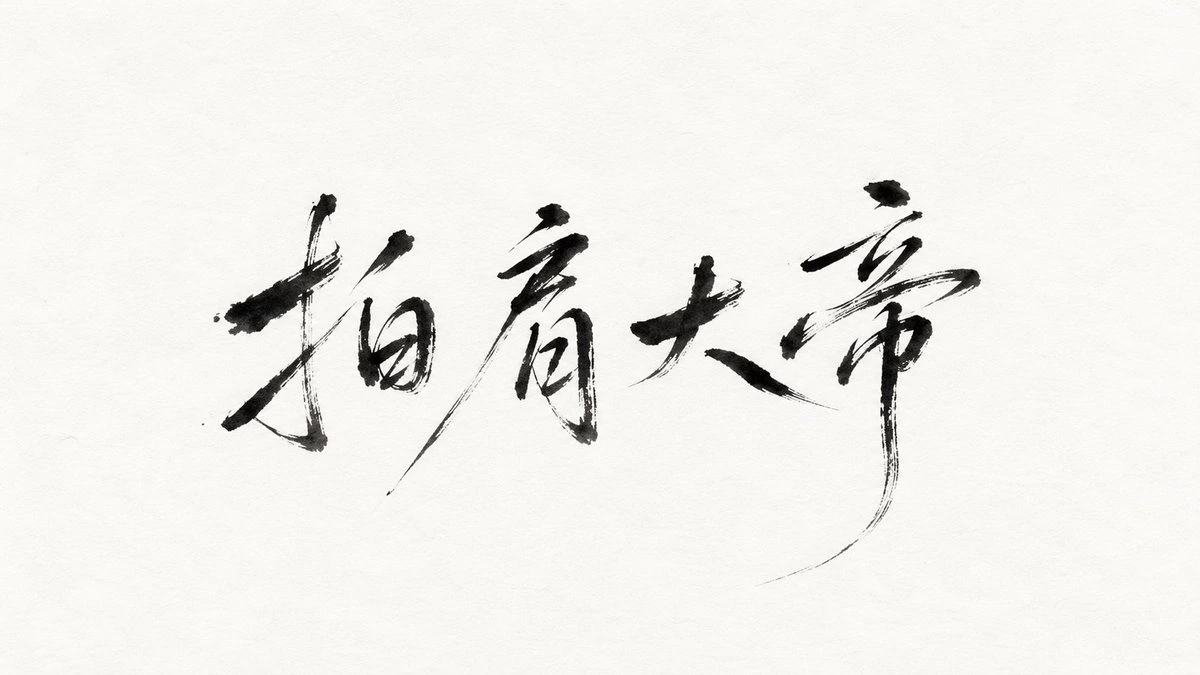 拍肩大帝